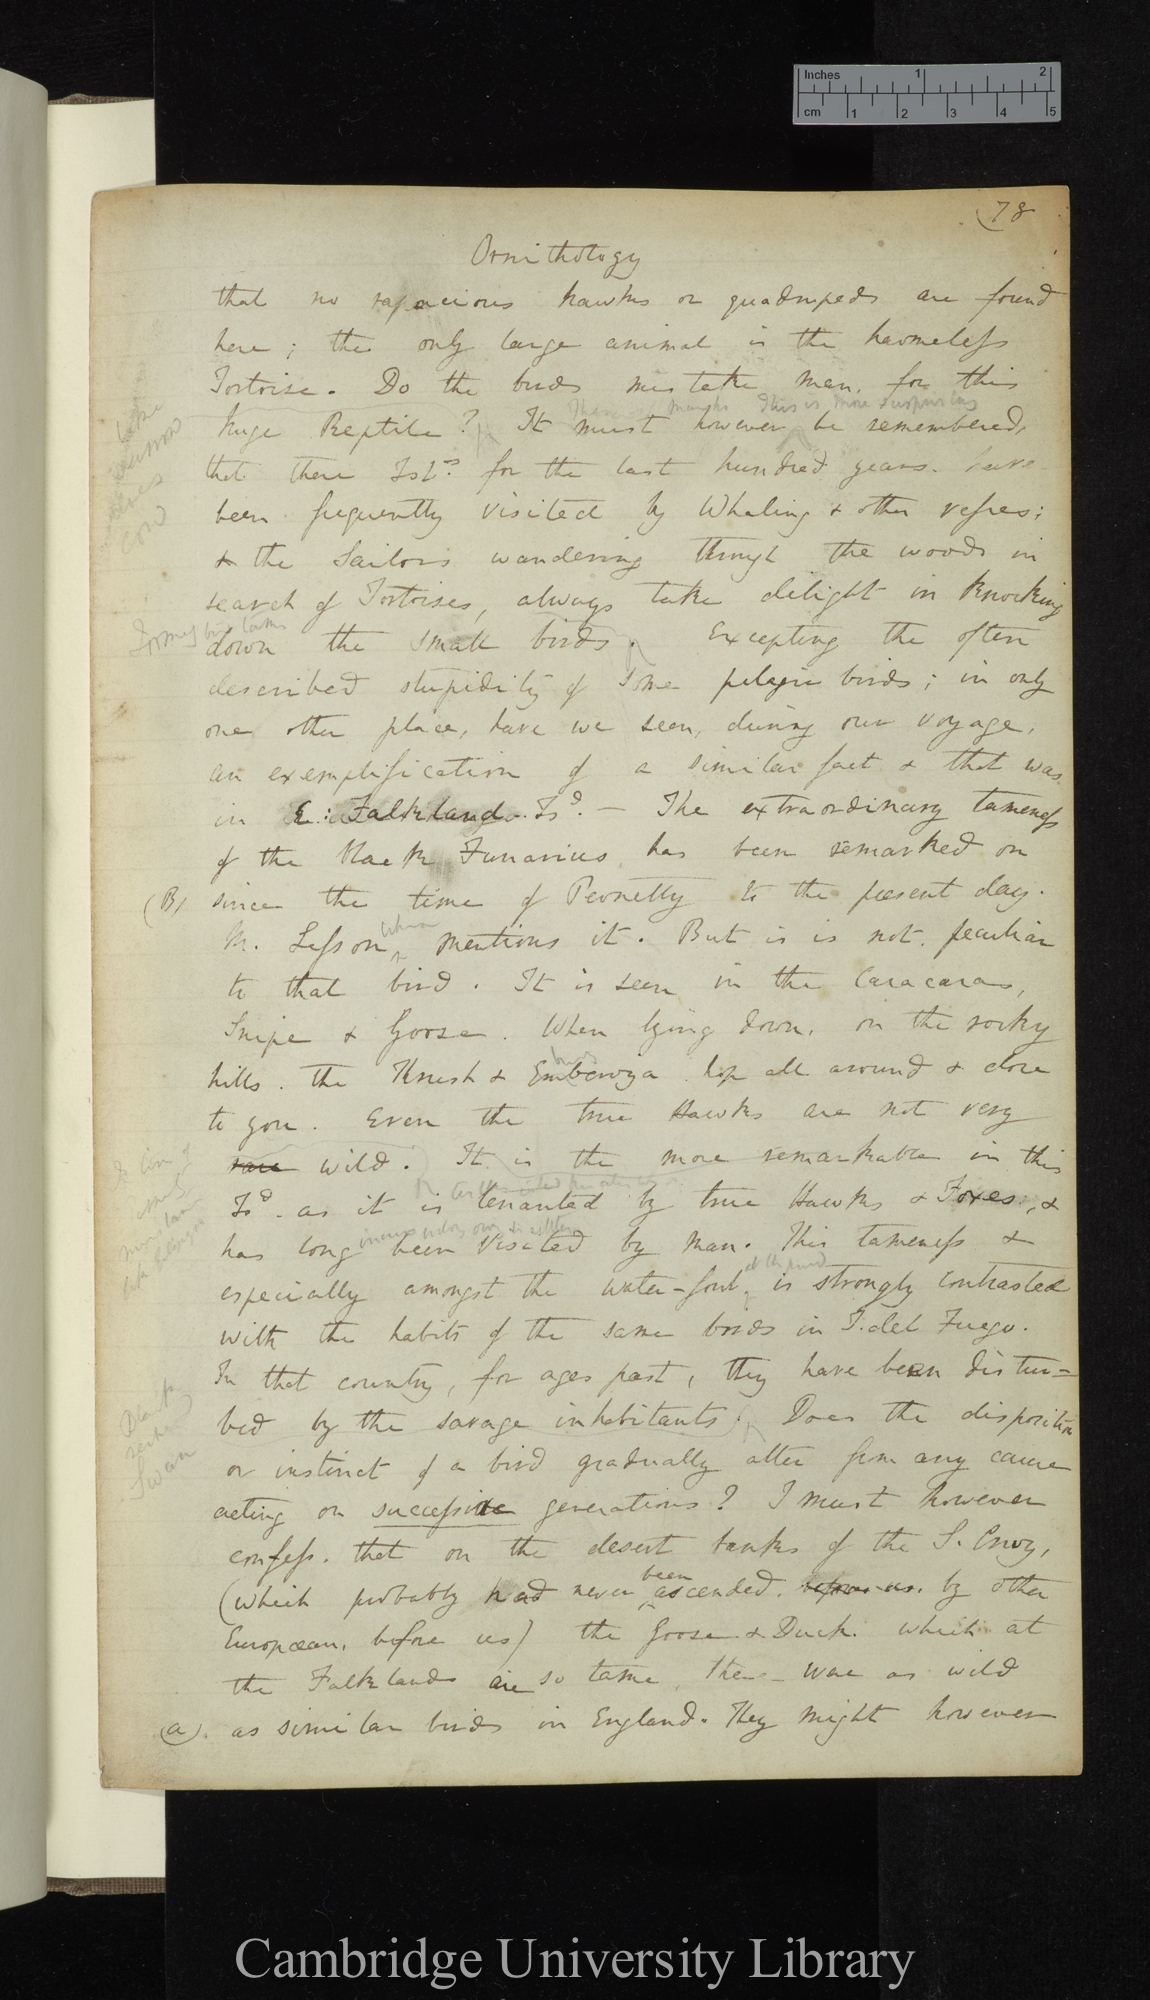 Inches 1 2
cm 1 2 3 4 5
(78
Ornithology
that no rapacious hawks or quadrupeds are found
here; the only large animal is the harmeless
Tortoise. Do the birds mistake man, for this
This is more surprising
huge Reptile? It must however be remembered,
that these Isds. for the last hundred years. have
been frequently visited by Whaling & other vesses;
& the Sailors wandering through the woods in
search of Tortoises, always take delight in knocking
down the small birds. Excepting the often
described stupidity of some pelagic birds; in only
one other place, have we seen, during our voyage,
an exemplification of a similar fact & that was
in E: Falkland Isd. — The extraordinary tameness
of the black Funarius has been remarked on
(B) since the time of Pernetty to the present day.
when
M. Lesson, mentions it. But is is not peculiar
to that bird. It is seen in the Caracaras,
Snipe & Goose. When lying down, on the rocky
birds
hills. the Thrush & Emberiza hop all around & close
to you. Even the true Hawks are not very
rare wild. It is the more remarkable in this
Isd. as it is tenanted by true Hawks & Foxes, &
has long been visited by man. This tameness &
especially amongst the water-fowl, is strongly contrasted
with the habits of the same birds in T. del Fuego.
In that country, for ages past, they have been distur=
bed by the savage inhabitants. Does the disposition
or instinct of a bird gradually alter from any cause
acting on successive generations? I must however
confess. that on the desert banks of the S. Cruz,
been
(which probably had never ascended, before us. by other
Europæan, before us) the Goose & Duck. which at
the Falklands are so tame, there were as wild
(a). as similar birds in England. They might however
Black
Swan
Cambridge University Library